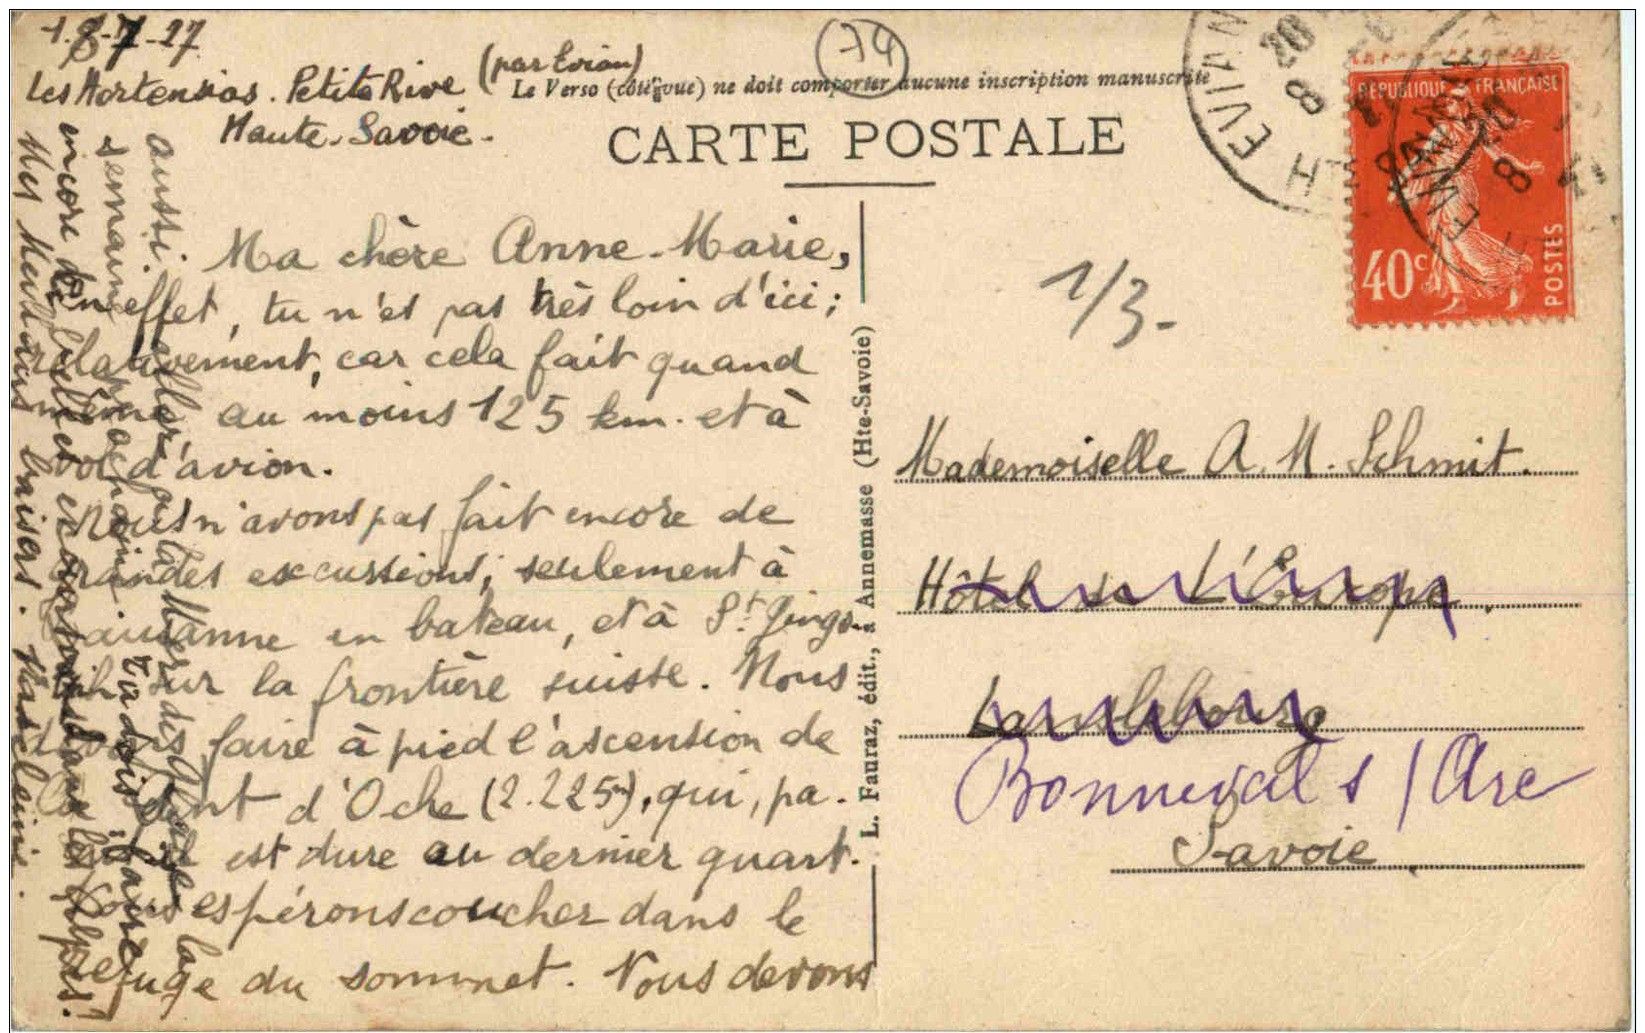 18-7-27
Les Hortensias. Petite Rive (par Evian)
Haute-Savoie.
74
Le Verso (côté vue) ne doit comporter aucune inscription manuscrite
CARTE POSTALE
EVIAN
20
8
RÉPUBLIQUE FRANÇAISE
40c
POSTES
1/3-
Ma chère Anne-Marie,
En effet, tu n'es pas très loin d'ici;
relativement, car cela fait quand
même au moins 125 km. et à
vol d'avion.
Nous n'avons pas fait encore de
grandes excursions; seulement à
Lausanne en bateau, et à St. Gingo-
lph sur la frontière suisse. Nous
devons faire à pied l'ascension de
la Dent d'Oche (2.225m), qui, pa-
est dure au dernier quart.
Nous espérons coucher dans le
refuge du sommet. Nous devons
aussi aller à la Mer de Glace la
semaine prochaine. tu dois faire
encore de belles excursions dans les Alpes!
Mes meilleurs baisers.
L. Fauraz, édit., à Annemasse (Hte-Savoie)
Mademoiselle A. M. Schmit.
Hôtel de L'Europe.
Lanslebourg
Bonneval s/Arc
Savoie